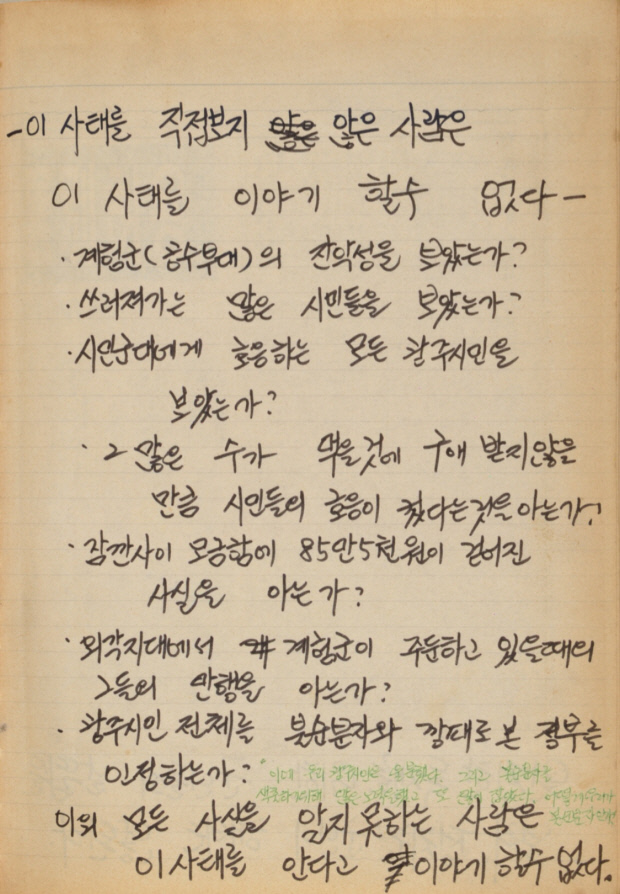 -이 사태를 직접보지 않은 사람은
이 사태를 이야기 할수 없다-
·계엄군(공수부대)의 잔악성을 보았는가?
·쓰러져가는 많은 시민들을 보았는가?
·시민군대에게 호응하는 모든 광주시민을
보았는가?
·그 많은 수가 먹을것에 구애 받지않을
만큼 시민들의 호응이 컸다는것을 아는가?
·잠깐사이 모금함에 85만5천원이 걷어진
사실을 아는가?
·외각지대에서 계엄군이 주둔하고 있을때의
그들의 만행을 아는가?
·광주시민 전체를 불순분자와 깡패로 본 정부를
인정하는가?
이의 모든 사실을 알지못하는 사람은
이사태를 안다고 이야기 할수 없다.